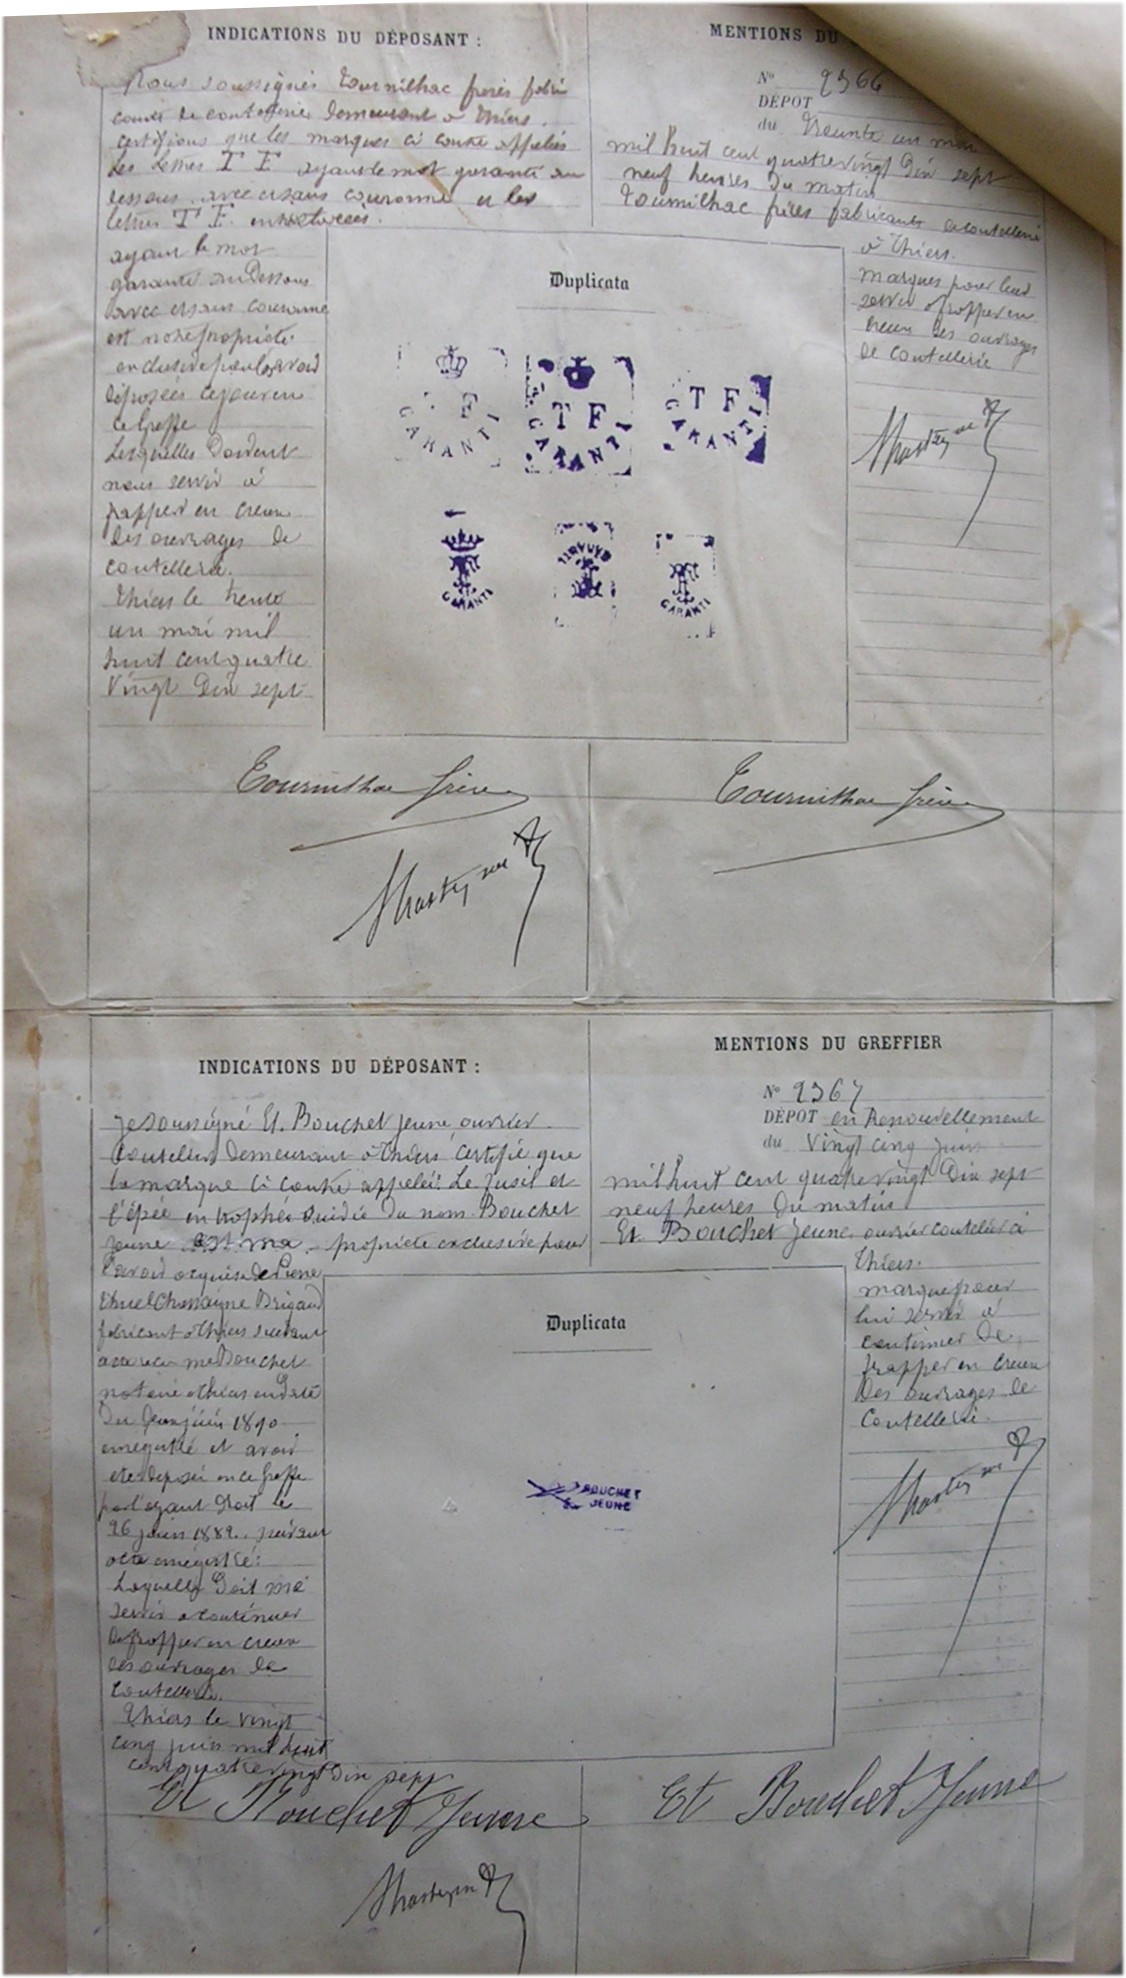 INDICATIONS DU DÉPOSANT :
Nous soussignés Tournilhac frères fabri
cants de coutellerie demeurant à Thiers
certifions que les marques ci contre appelées
les lettres T F ayant le mot garanti au
dessous avec et sans couronne et les
lettres T F entrelacées
ayant le mot
garanti au Dessous
avec et sans couronne
est notre propriété
exclusive pour l'avoir
déposées ce jour en
ce Greffe
Lesquelles doivent
nous servir à
frapper en creux
des ouvrages de
coutellerie.
Thiers le trente
un mai mil
huit cent quatre
vingt Dix sept
MENTIONS DU
N° 2366
DÉPOT
du Trente un mai
mil huit cent quatre vingt Dix sept
neuf heures Du matin
Tournilhac frères fabricants de coutellerie
à Thiers.
marques pour leur
servir à frapper en
creux des ouvrages
de coutellerie
Duplicata
F
GARANTI
T F
GARANTI
T F
GARANTI
GARANTI
GARANTI
GARANTI
Tournilhac frères
Tournilhac frères
INDICATIONS DU DÉPOSANT :
Je soussigné Et. Bouchet jeune, ouvrier
Coutelier, Demeurant à Thiers, certifie que
la marque ci contre appelée: Le fusil et
l'épée en trophée suivie du nom Bouchet
jeune est ma propriété exclusive pour
l'avoir acquise de Pierre
Chassaigne Brigaud
fabricant à Thiers suivant
acte reçu me Bouchet
notaire à Thiers en Date
Du juin 1890
enregistré et avoir
été déposée en ce Greffe
par l'ayant droit le
26 juin 1882. suivant
acte enregistré:
Laquelle Doit me
servir à continuer
de frapper en creux
des ouvrages de
coutellerie.
Thiers le vingt
cinq juin mil huit
cent quatre vingt Dix sept
MENTIONS DU GREFFIER
N° 2367
DÉPOT en Renouvellement
du vingt cinq juin
mil huit cent quatre vingt Dix sept
neuf heures Du matin
Et. Bouchet Jeune ouvrier coutelier à
Thiers.
marque pour
lui servir à
continuer De
frapper en creux
Des ouvrages de
Coutellerie.
Duplicata
BOUCHET
JEUNE
Et Bouchet Jeune
Et Bouchet Jeune